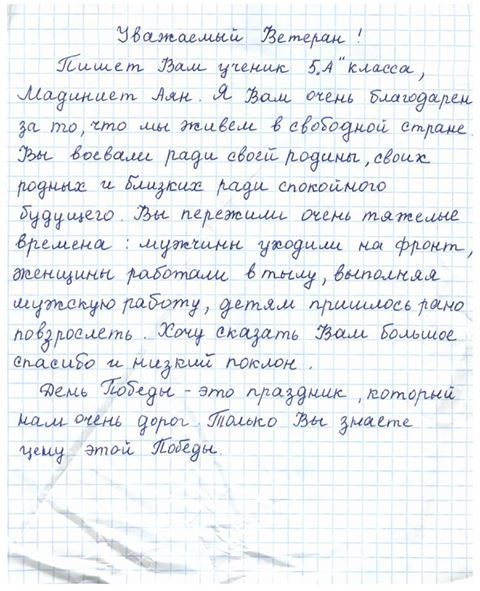 Уважаемый Ветеран!
Пишет Вам ученик 5„А" класса,
Мадиниет Аян. Я Вам очень благодарен
за то, что мы живем в свободной стране.
Вы воевали ради своей родины, своих
родных и близких ради спокойного
будущего. Вы пережили очень тяжелые
времена: мужчины уходили на фронт,
женщины работали в тылу, выполняя
мужскую работу, детям пришлось рано
повзрослеть. Хочу сказать Вам большое
спасибо и низкий поклон.
День Победы - это праздник, который
нам очень дорог. Только Вы знаете
цену этой Победы.